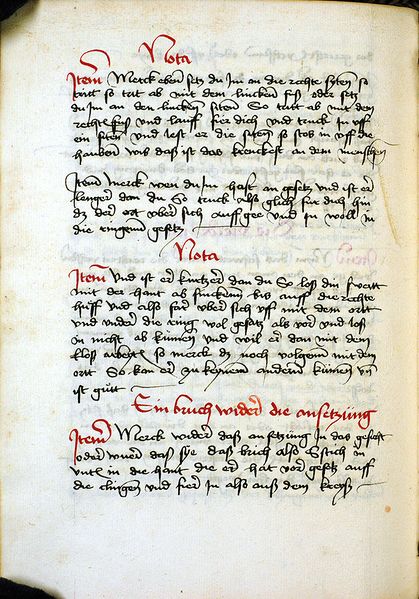 Nota
Item Merck eben setz du Im an die rechte syten so
tritt so trit ab mit dem lincken fuß oder setz
du Im an den lincken siten So tritt ab mit dem
rechten fuß und lauff fier dich und truck In uff
ein siten und lest er die siten so stos in uff die
hauben was daß ist das krenckest an dem menschen
Item merck wen du Im hast an gesetz und ist er
lenger dan du So truck also glich fur dich hin
dz der ort uber sich auff gee und In woll in
die ringen gesetz
Nota
Item Und ist er kurtzer dan du So loß din swertt
mit der hant ab sincken biß auff die rechte
hüff und also far uber sich uff mit dem ortt
und under die ring wol gesatz als vor und loß
In nicht ab kumen und wil er dan mit dem
kloß so merck dz noch volgenn mit dem
ortt So kan er zu keynem anderm kumen und
ist gutt
Ein bruch wider die ansetzung
Item Merck wider daß an setzung In das gesicht
oder wuer daß sye daß brich also Stich in
in die hant die er hat vor gesetz auff
die clingen und fier In also auß dem kreyß